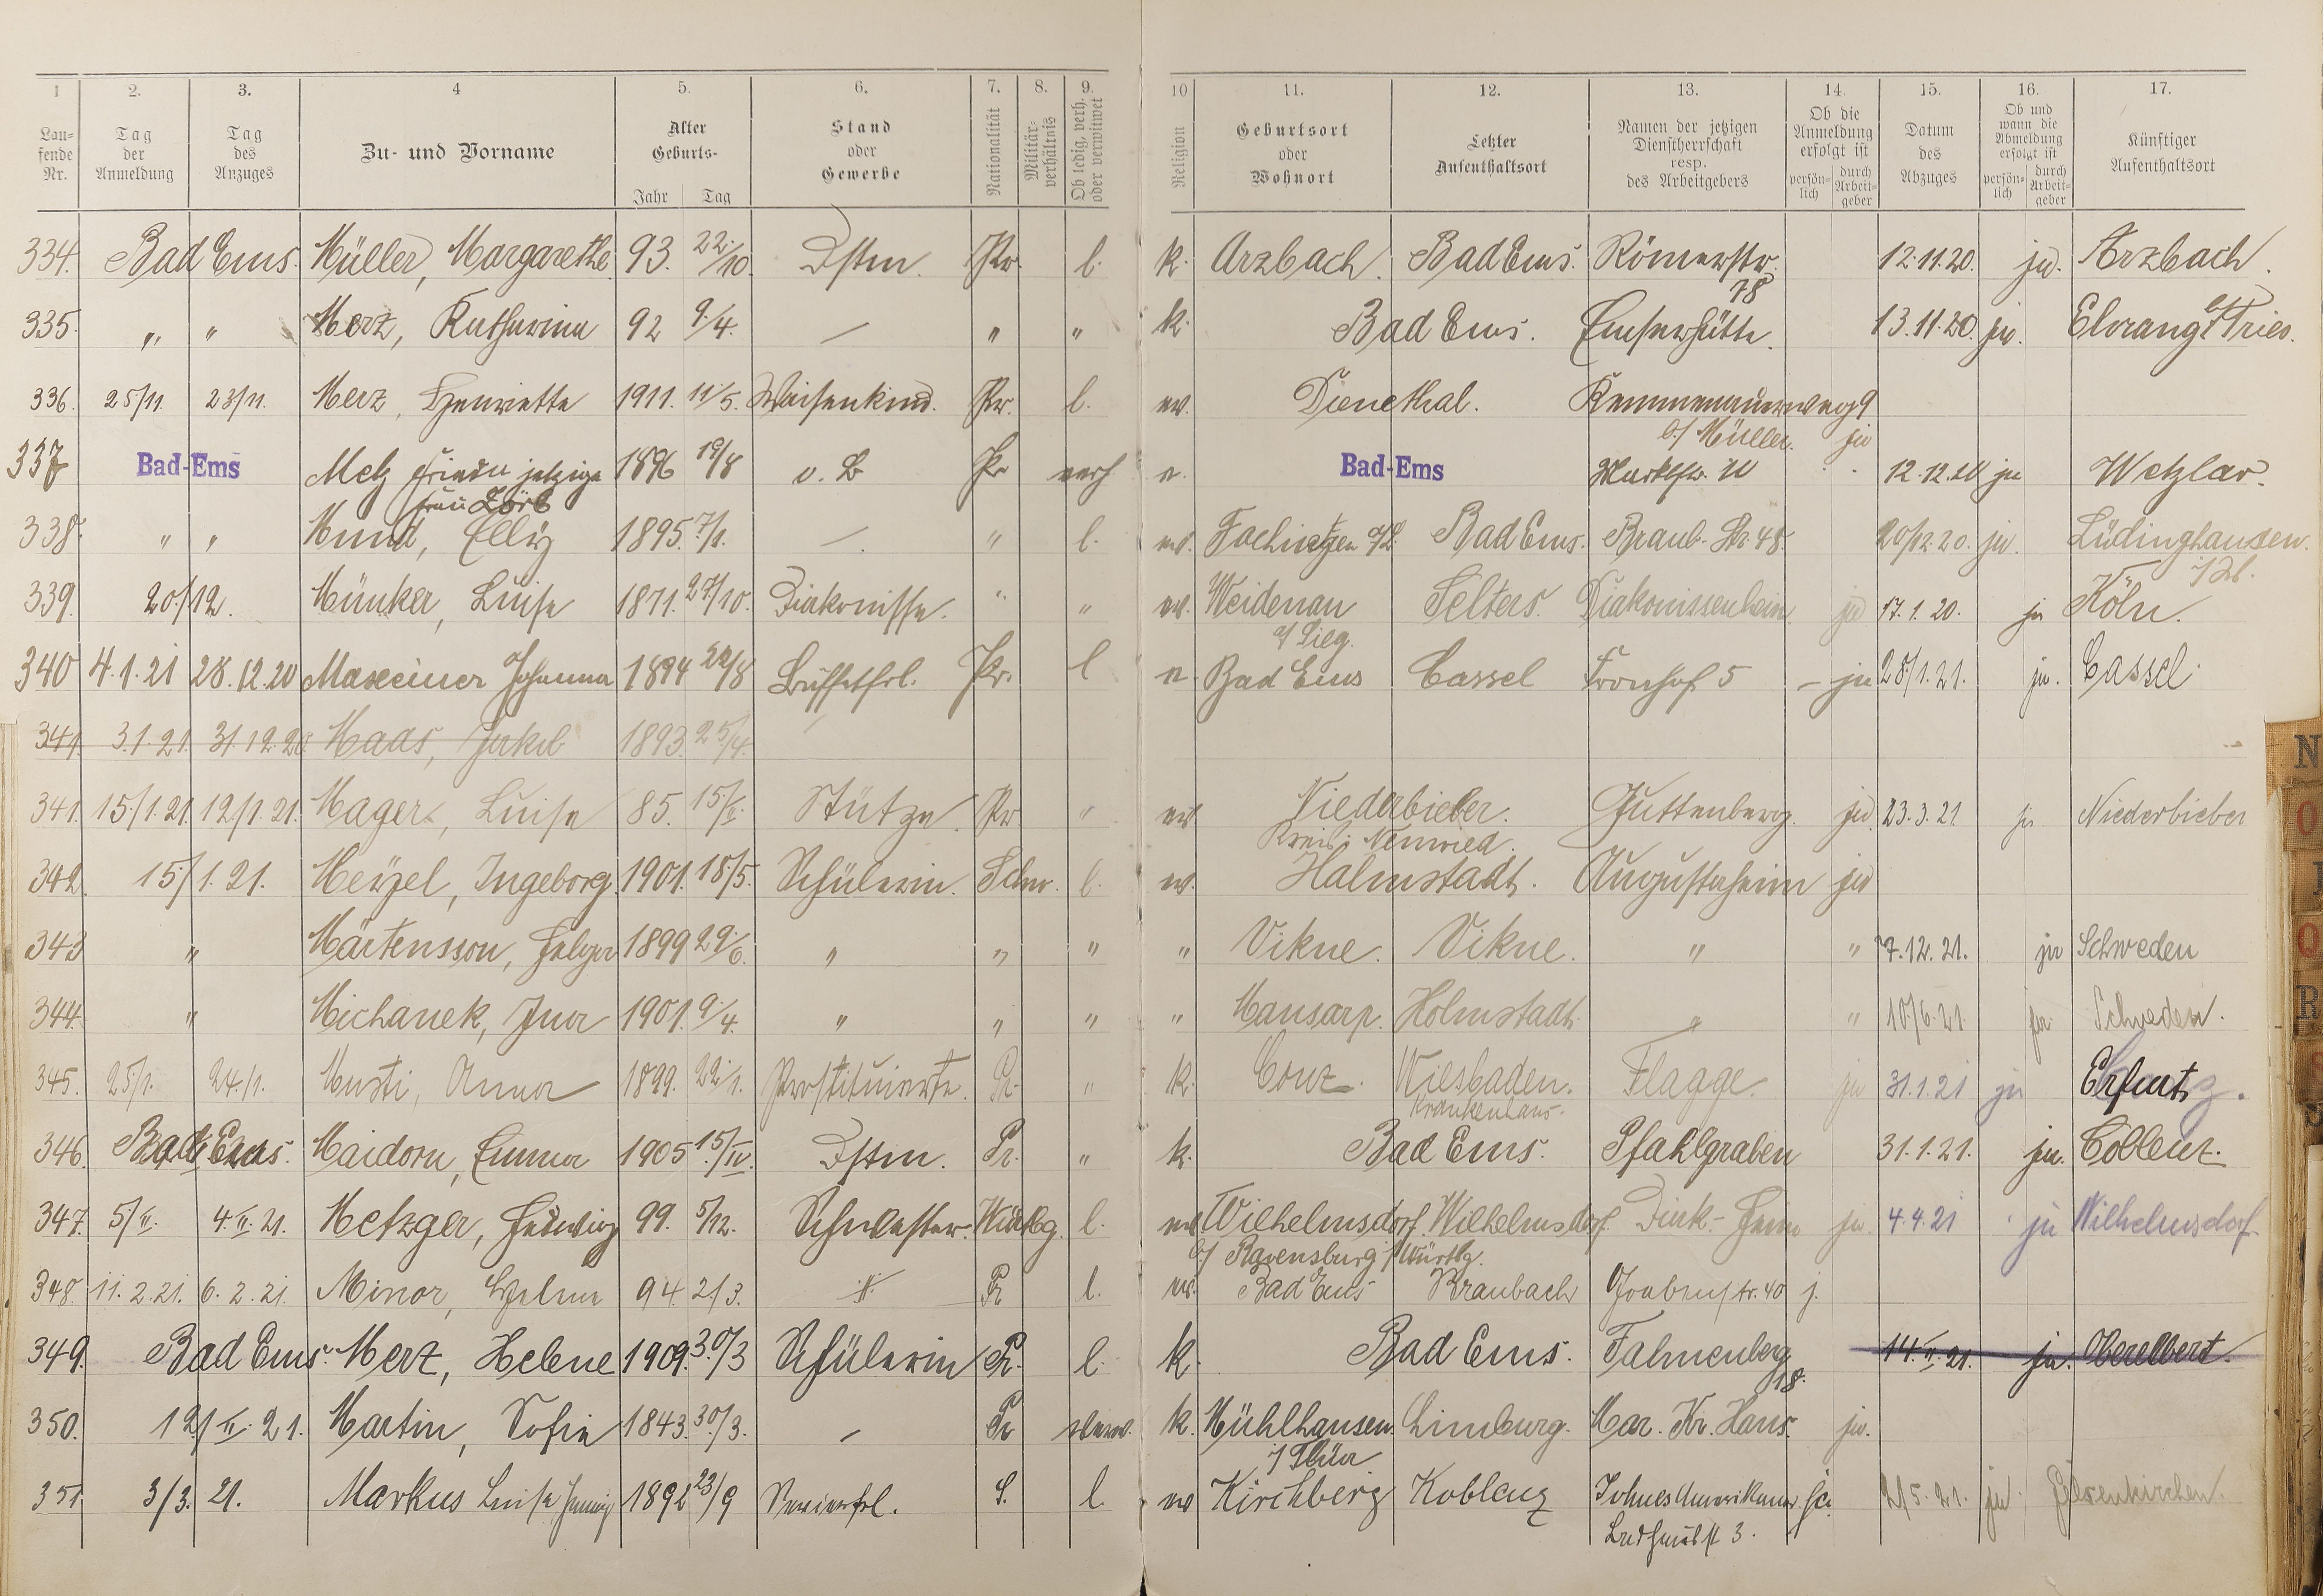 1 2. 3. 4 5. 6. 7. 8. 9. 10 11. 12. 13. 14. 15. 16. 17.
Lau-fende Nr. Tag der Anmeldung Tag des Anzuges Zu- und Vorname Alter Geburts- Jahr Tag Stand oder Gewerbe Nationalität Militär-verhältnis Ob ledig, verh. oder verwitwet Religion Geburtsort oder Wohnort Letzter Aufenthaltsort Namen der jetzigen Dienstherrschaft resp. des Arbeitgebers Ob die Anmeldung erfolgt ist persön-lich durch Arbeit-geber Datum des Abzuges Ob und wann die Abmeldung erfolgt ist persön-lich durch Arbeit-geber Künftiger Aufenthaltsort
334. Bad Ems. Müller, Margarethe 93. 22./10. Dstm. Pr. l. k. Arzbach. Bad Ems. Römerstr. 78 12.11.20. ja. Arzbach.
335. " " Merz, Katharina 92 9./4. — " " k. Bad Ems. Emserhütte. 13.11.20. ja.
336. 25/11. 23/11. Merz, Henriette 1911. 11/5. Waisenkind. Pr. l. ev. Dienethal. Kemmenauerweg 9
b/ Müller. ja
337 Bad-Ems Metz Frieda jetzige 1896 19/8 o. B Pr verh e. Bad-Ems Marktstr. 12.12.20 ja Wetzlar.
frau
338. " " Mund, Elly 1895. 7/1. — " l. ev. Fachingen a/L. Bad Ems. Braub. Str. 48. 20/12.20. ja. Lüdinghausen.
339. 20./12. Münker, Luise 1871. 27/10. Diakonisse. " " ev. Weidenau Selters. Diakonissenheim ja 17.1.20. ja Köln.
a/ Sieg.
340 4.1.21 28.12.20 Maxeiner Johanna 1894 Buffetfrl. Pr. l e. Bad Ems Cassel Fronhof 5 — ja 28/1.21. ja. Cassel
341. 3.1.21. 31.12.20 Maas, Jakob 1893. 25/4.
341. 15/1.21. 12/1.21. Mager, Luise 85. 15/ Stütze. Pr. " ev. Niederbieber. Guttenberg. ja. 23.3.21. ja Niederbieber
Kreis Neuwied.
342. 15/1.21. Ingeborg. 1901. 18./5. Schülerin. Schw. l. ev. Halmstadt. Augustaheim ja
343 " Märtensson, Helga 1899 29/6. " " " " Vikne. Vikne. " " 7.12.21. ja Schweden
344. " Michanek, Inor 1901. 9/4. " " " " Mansarp. Holmstadt. " " 10/6.21. ja Schweden.
345. 25/1. 24./1. Musti, Anna 1899. 22/1. Prostituierte. Pr. " k. Conz. Wiesbaden. Flagge. ja 31.1.21 ja Erfurt
Krankenhaus.
346. Bad Ems. Maidorn, Emma 1905 15./IV. Dstm. Pr. " k. Bad Ems. Pfahlgraben 31.1.21. ja. Coblenz.
347. 5/II. 4.II.21. Metzger, Hedwig 99. 5/12. Schwester. Württbg. l. ev. Wilhelmsdorf. Wilhelmsdorf. Diak.-Heim ja. 4.4.21 ja Wilhelmsdorf
b/ Ravensburg / Württbg.
348. 11.2.21. 6.2.21. Minor, 94. 2/3. Pr l. ev. Bad Ems Braubach Grabenstr. 40 j.
349. Bad Ems. Merz, Helene 1909. 30/3 Schülerin Pr. l. k. Bad Ems. Fahnenberg 18. 14.II.21. ja. Oberelbert.
350. 12/II.21. Martin, Sofie 1843. 30/3. — Pr k. Mühlhausen Limburg. Mar. Kr. Haus. ja.
351 3/3. 21. Markus Luise 23/9 l. ev Kirchberg Koblenz ja. 2/5.21. ja
N
O
P
Q
R
S